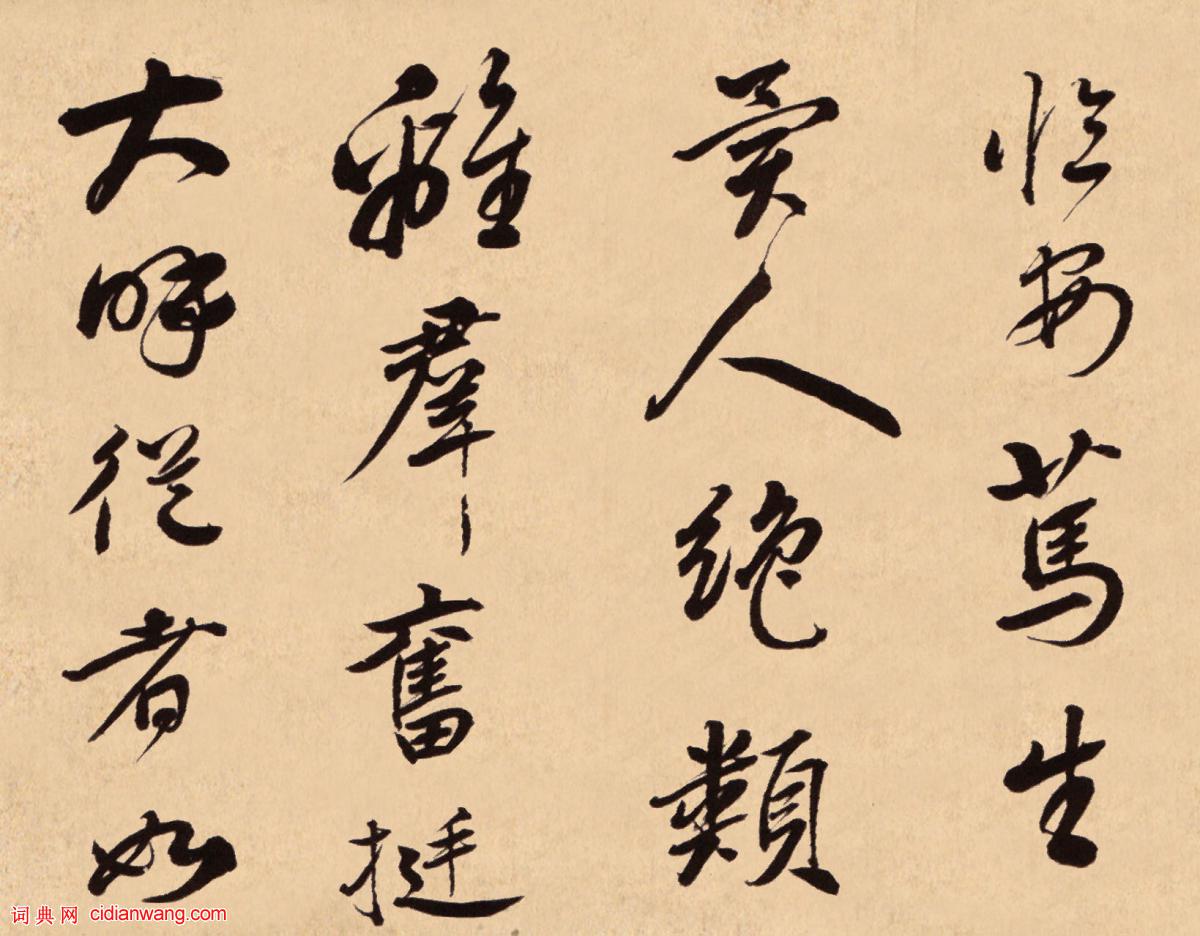 臨安篤生
異人絕類
離羣奮挺
大呼從者如
词典网 cidianwang.com